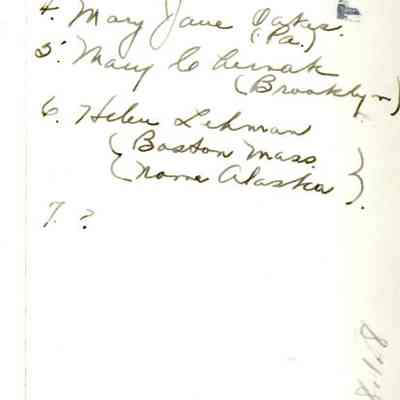 4. Mary Jane Oakes.
(Pa.)
5. Mary Chernak
(Brooklyn)
6. Helen Lehman
(Boston Mass.
(Nome Alaska).
7. ?
8118